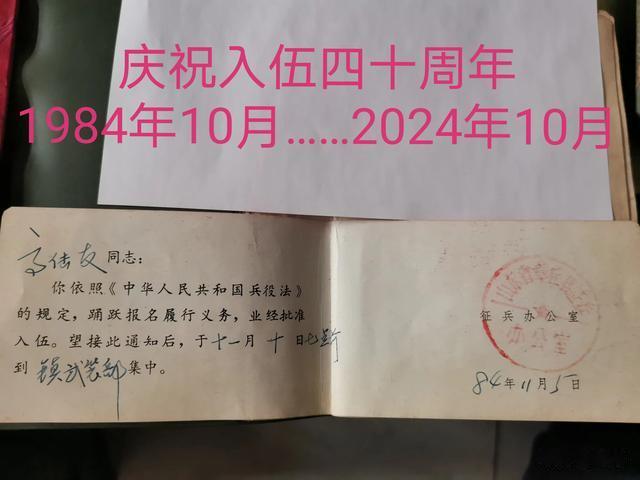 庆祝入伍四十周年
1984年10月……2024年10月
同志：
你依照《中华人民共和国兵役法》
的规定，踊跃报名履行义务，业经批准
入伍。望接此通知后，于十一月十日
到镇武装部集中。
征兵办公室
办公室
84年11月5日